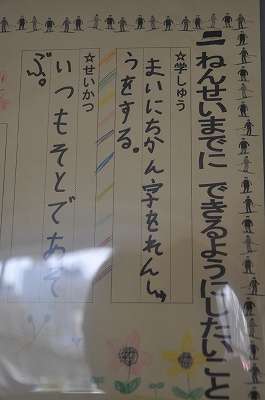 二ねんせいまでに できるようにしたいこと
☆学しゅう
まいにちかん字をれんしゅ
うをする。
☆せいかつ
いつもそとであそ
ぶ。